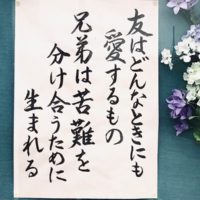 友はどんなときにも
愛するもの
兄弟は苦難を
分け合うために
生まれる